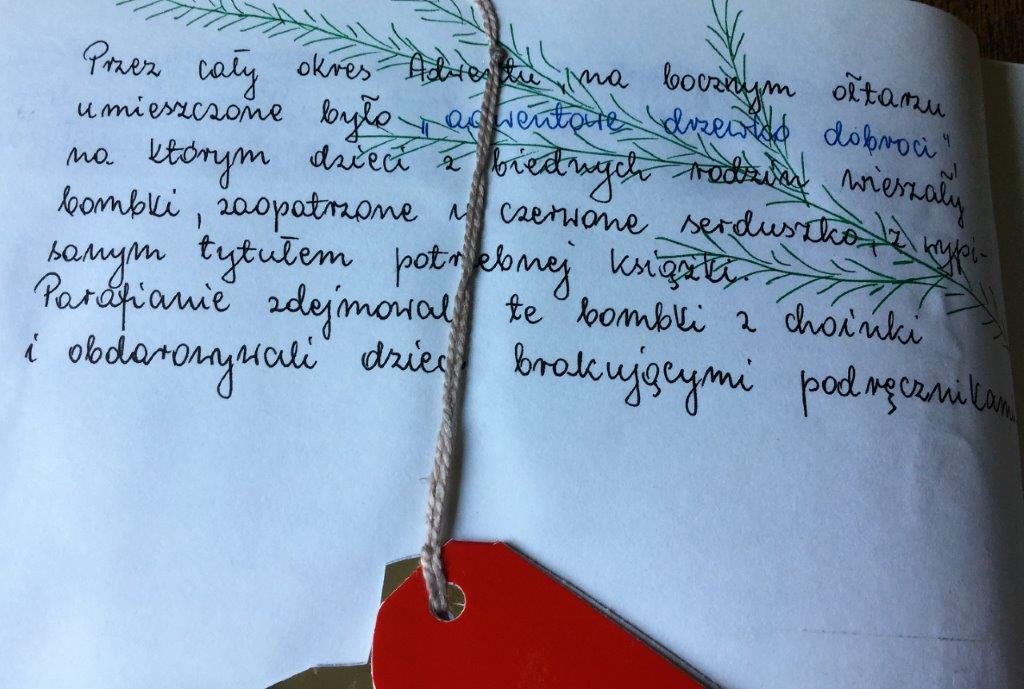 Przez cały okres Adwentu, na bocznym ołtarzu
umieszczone było „adwentowe drzewko dobroci”,
na którym dzieci z biednych rodzin wieszały
bombki, zaopatrzone w czerwone serduszko, z wypi-
sanym tytułem potrzebnej książki.
Parafianie zdejmowali te bombki z choinki
i obdarowywali dzieci brakującymi podręcznikami